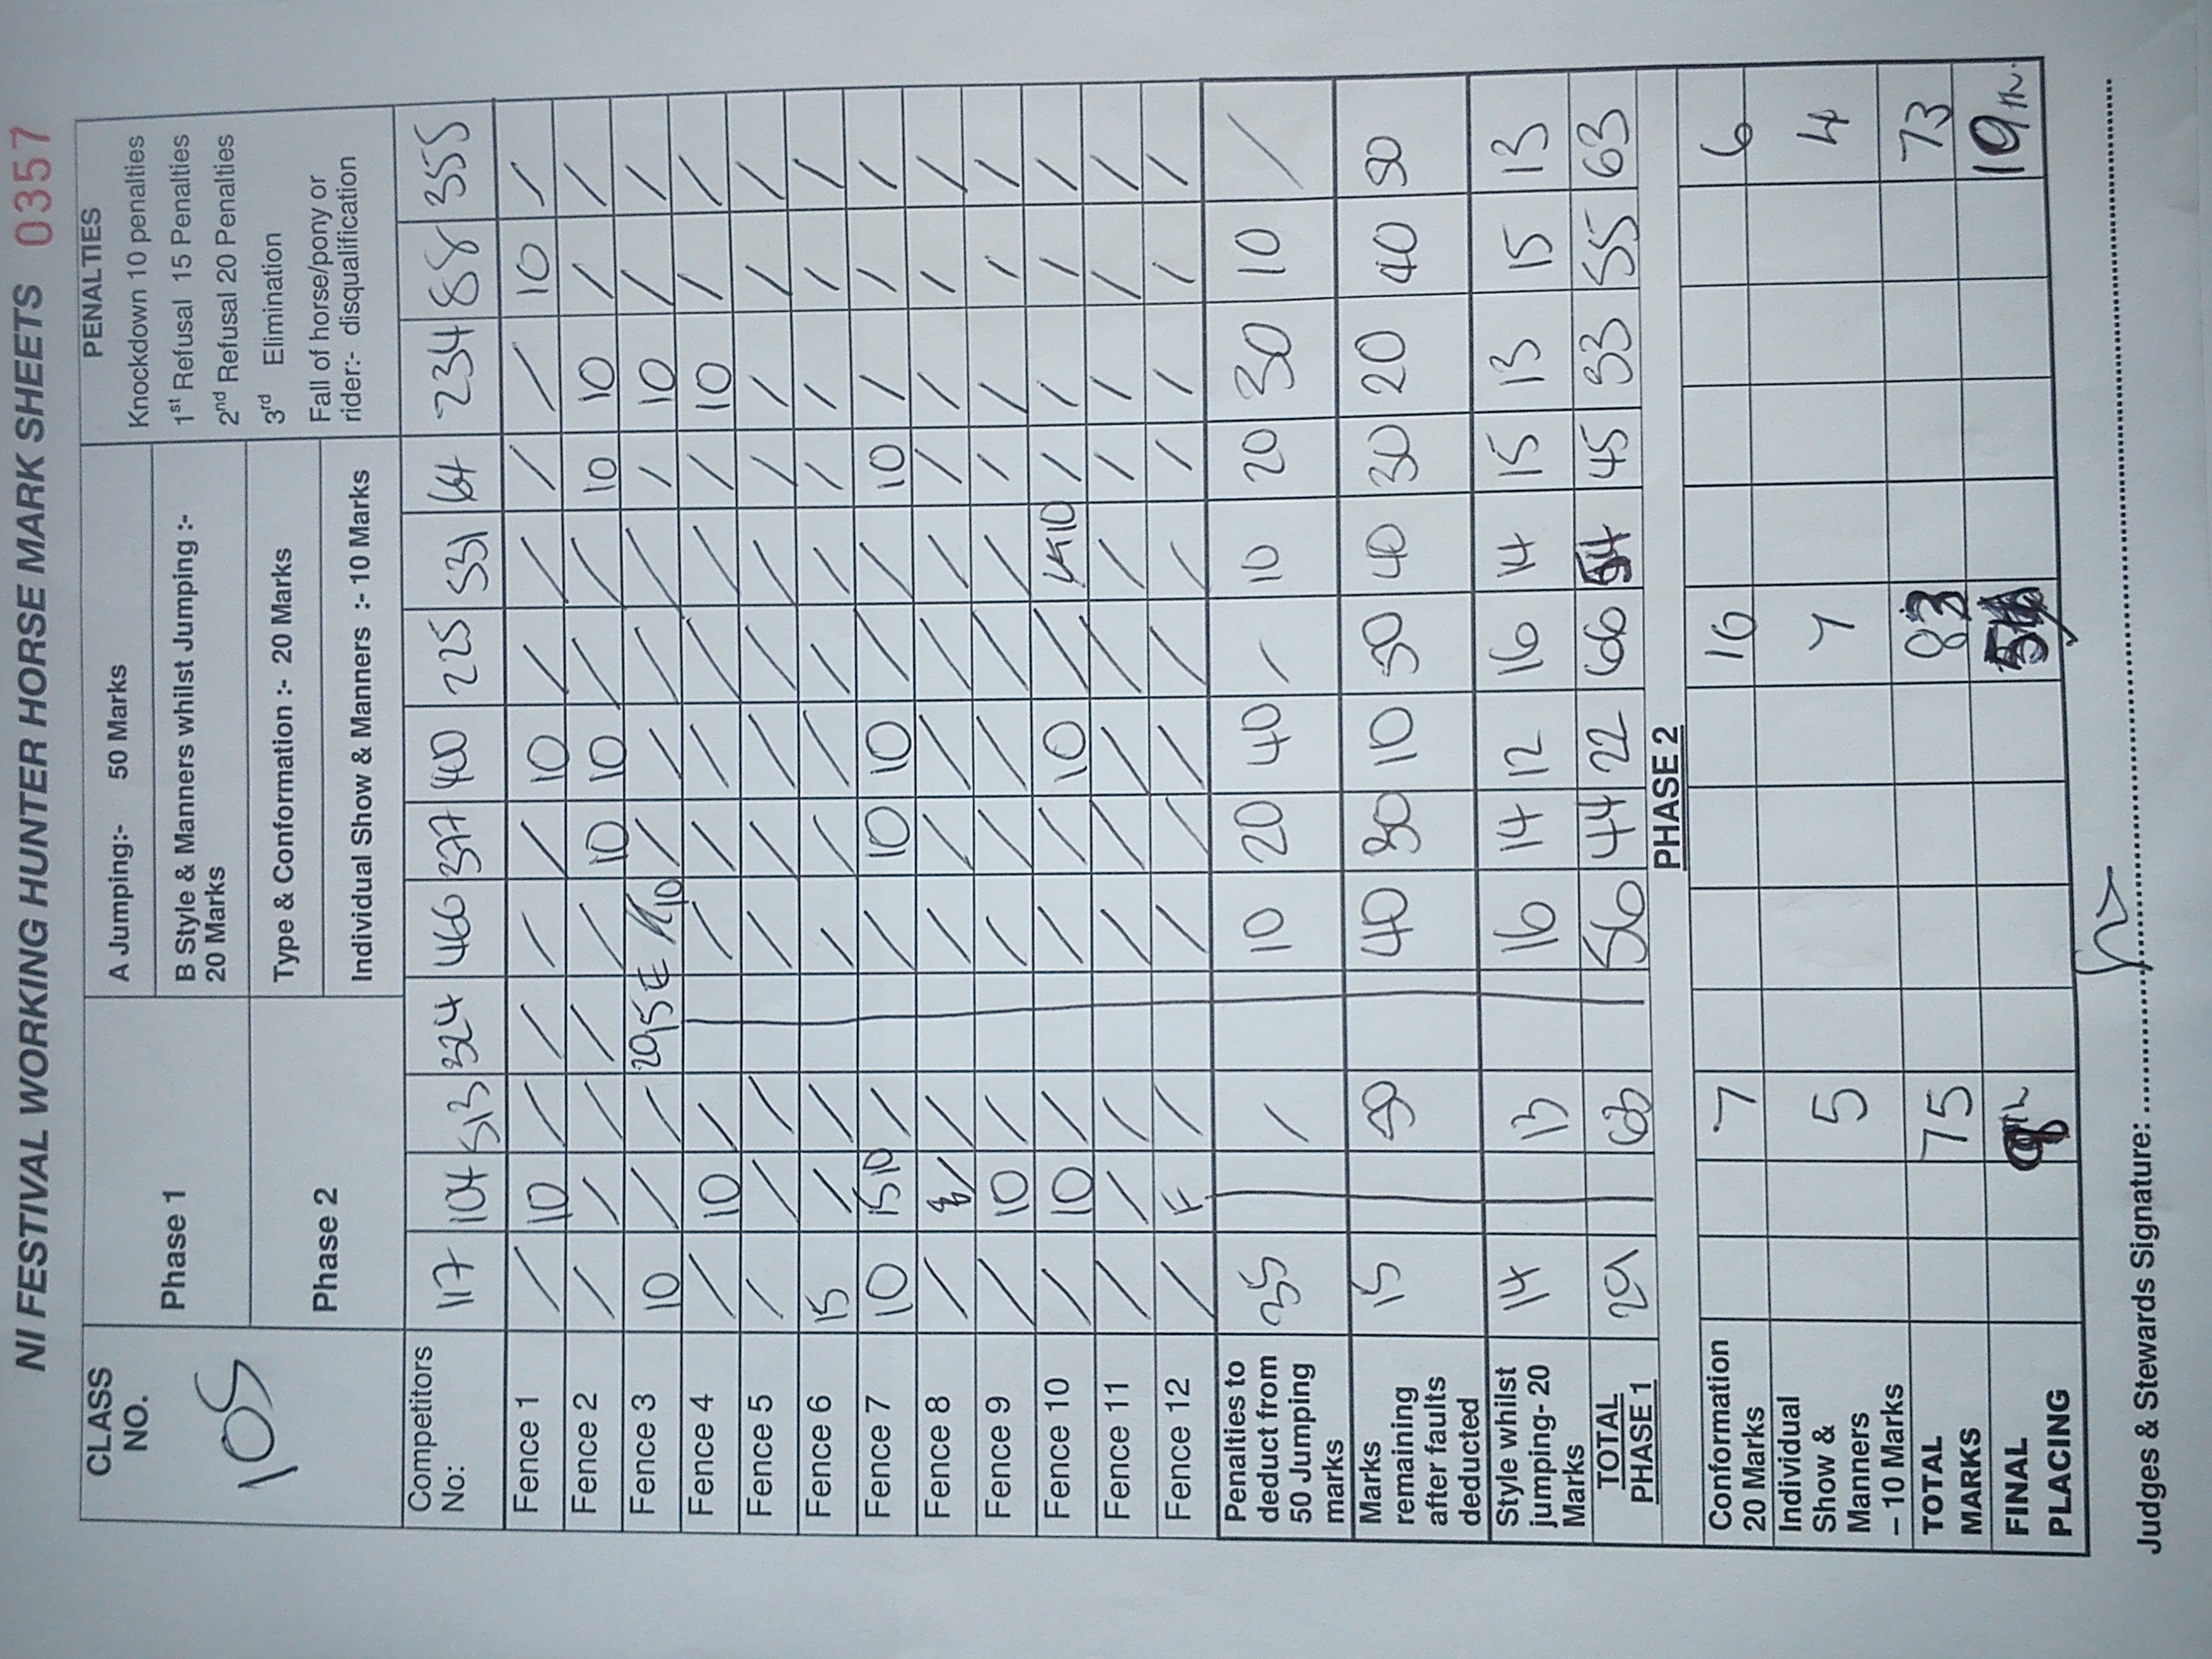 NI FESTIVAL WORKING HUNTER HORSE MARK SHEETS 0357
CLASS NO. 105
Phase 1
A Jumping:- 50 Marks
B Style & Manners whilst Jumping :- 20 Marks
Phase 2
Type & Conformation :- 20 Marks
Individual Show & Manners :- 10 Marks
PENALTIES
Knockdown 10 penalties
1st Refusal 15 Penalties
2nd Refusal 20 Penalties
3rd Elimination
Fall of horse/pony or
rider:- disqualification
Competitors No: 117 104 513 324 466 377 400 225 531 64 234 88 355
Fence 1 / 10 / / / / 10 / / / / 10 /
Fence 2 / / / / / 10 10 / / 10 10 / /
Fence 3 10 / / E 10 / / / / / 10 / /
Fence 4 / 10 / / / / / / / 10 / /
Fence 5 / / / / / / / / / / / /
Fence 6 15 / / / / / / / / / / /
Fence 7 10 15 10 / / 10 10 / / 10 / / /
Fence 8 / / / / / / / / / / / /
Fence 9 / 10 / / / / / / / / / /
Fence 10 / 10 / / / 10 / 10 / / / /
Fence 11 / / / / / / / / / / / /
Fence 12 / F / / / / / / / / / /
Penalties to deduct from 50 Jumping marks 35 / 10 20 40 / 10 20 30 10 /
Marks remaining after faults deducted 15 50 40 30 10 50 40 30 20 40 50
Style whilst jumping- 20 Marks 14 13 16 14 12 16 14 15 13 15 13
TOTAL PHASE 1 29 63 56 44 22 66 54 45 33 55 63
PHASE 2
Conformation 20 Marks 7 10 6
Individual Show & Manners – 10 Marks 5 7 4
TOTAL MARKS 75 83 73
FINAL PLACING 10th
Judges & Stewards Signature: